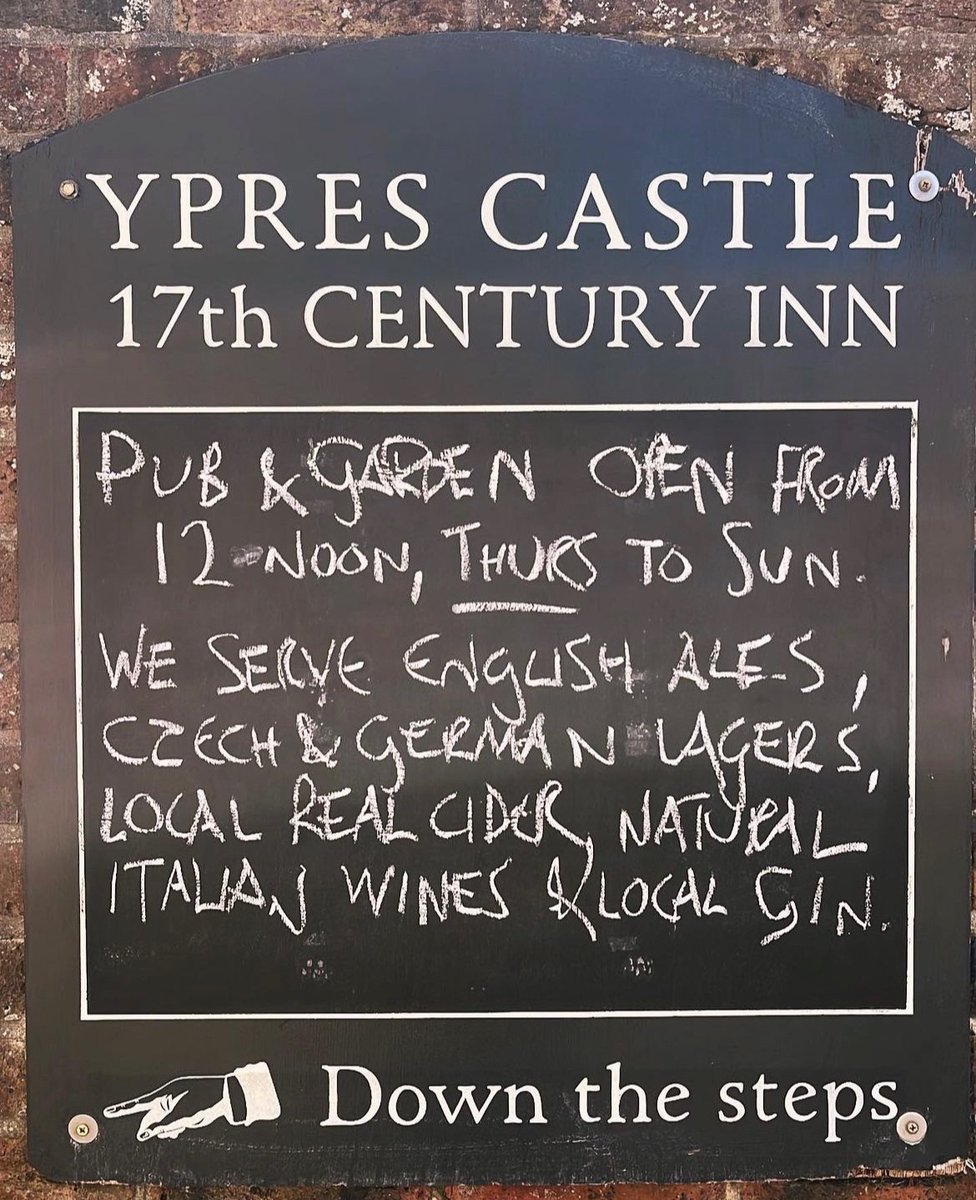 YPRES CASTLE
17th CENTURY INN
PUB & GARDEN OPEN FROM
12 NOON, THURS TO SUN.
WE SERVE ENGLISH ALES,
CZECH & GERMAN LAGERS,
LOCAL REAL CIDER, NATURAL
ITALIAN WINES & LOCAL GIN.
Down the steps